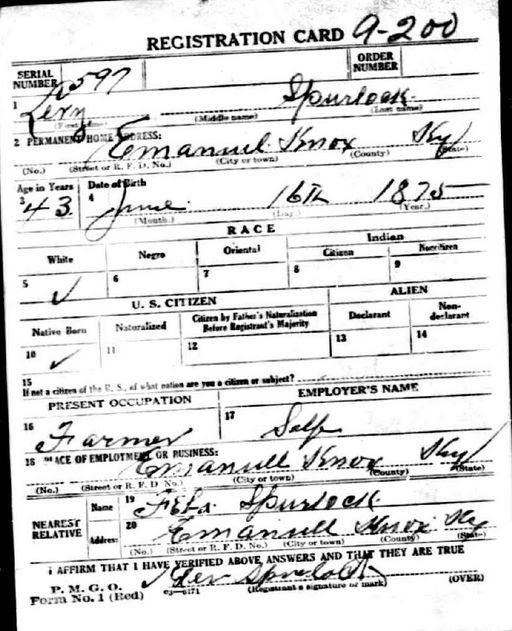 REGISTRATION CARD 9-200
SERIAL NUMBER 597 ORDER NUMBER
1 Levy Spurlock
(First name) (Middle name) (Last name)
2 PERMANENT HOME ADDRESS:
Emanuel Knox Ky
(No.) (Street or R. F. D. No.) (City or town) (County) (State)
Age in Years Date of Birth
3 43 4 June 16th 1875
(Month.) (Day.) (Year.)
RACE
White Negro Oriental Indian
Citizen Noncitizen
5 ✓ 6 7 8 9
U. S. CITIZEN ALIEN
Native Born Naturalized Citizen by Father's Naturalization Before Registrant's Majority Declarant Non-declarant
10 ✓ 11 12 13 14
15
If not a citizen of the U. S., of what nation are you a citizen or subject?
PRESENT OCCUPATION EMPLOYER'S NAME
16 Farmer 17 Self
18 PLACE OF EMPLOYMENT OR BUSINESS:
Emanuell Knox Ky
(No.) (Street or R. F. D. No.) (City or town) (County) (State)
NEAREST RELATIVE Name 19 Spurlock
Address: 20 Emanuell Knox Ky
(No.) (Street or R. F. D. No.) (City or town) (County) (State)
I AFFIRM THAT I HAVE VERIFIED ABOVE ANSWERS AND THAT THEY ARE TRUE
P. M. G. O.
Form No. 1 (Red) 03-6171 Spurlock
(Registrant's signature or mark) (OVER)